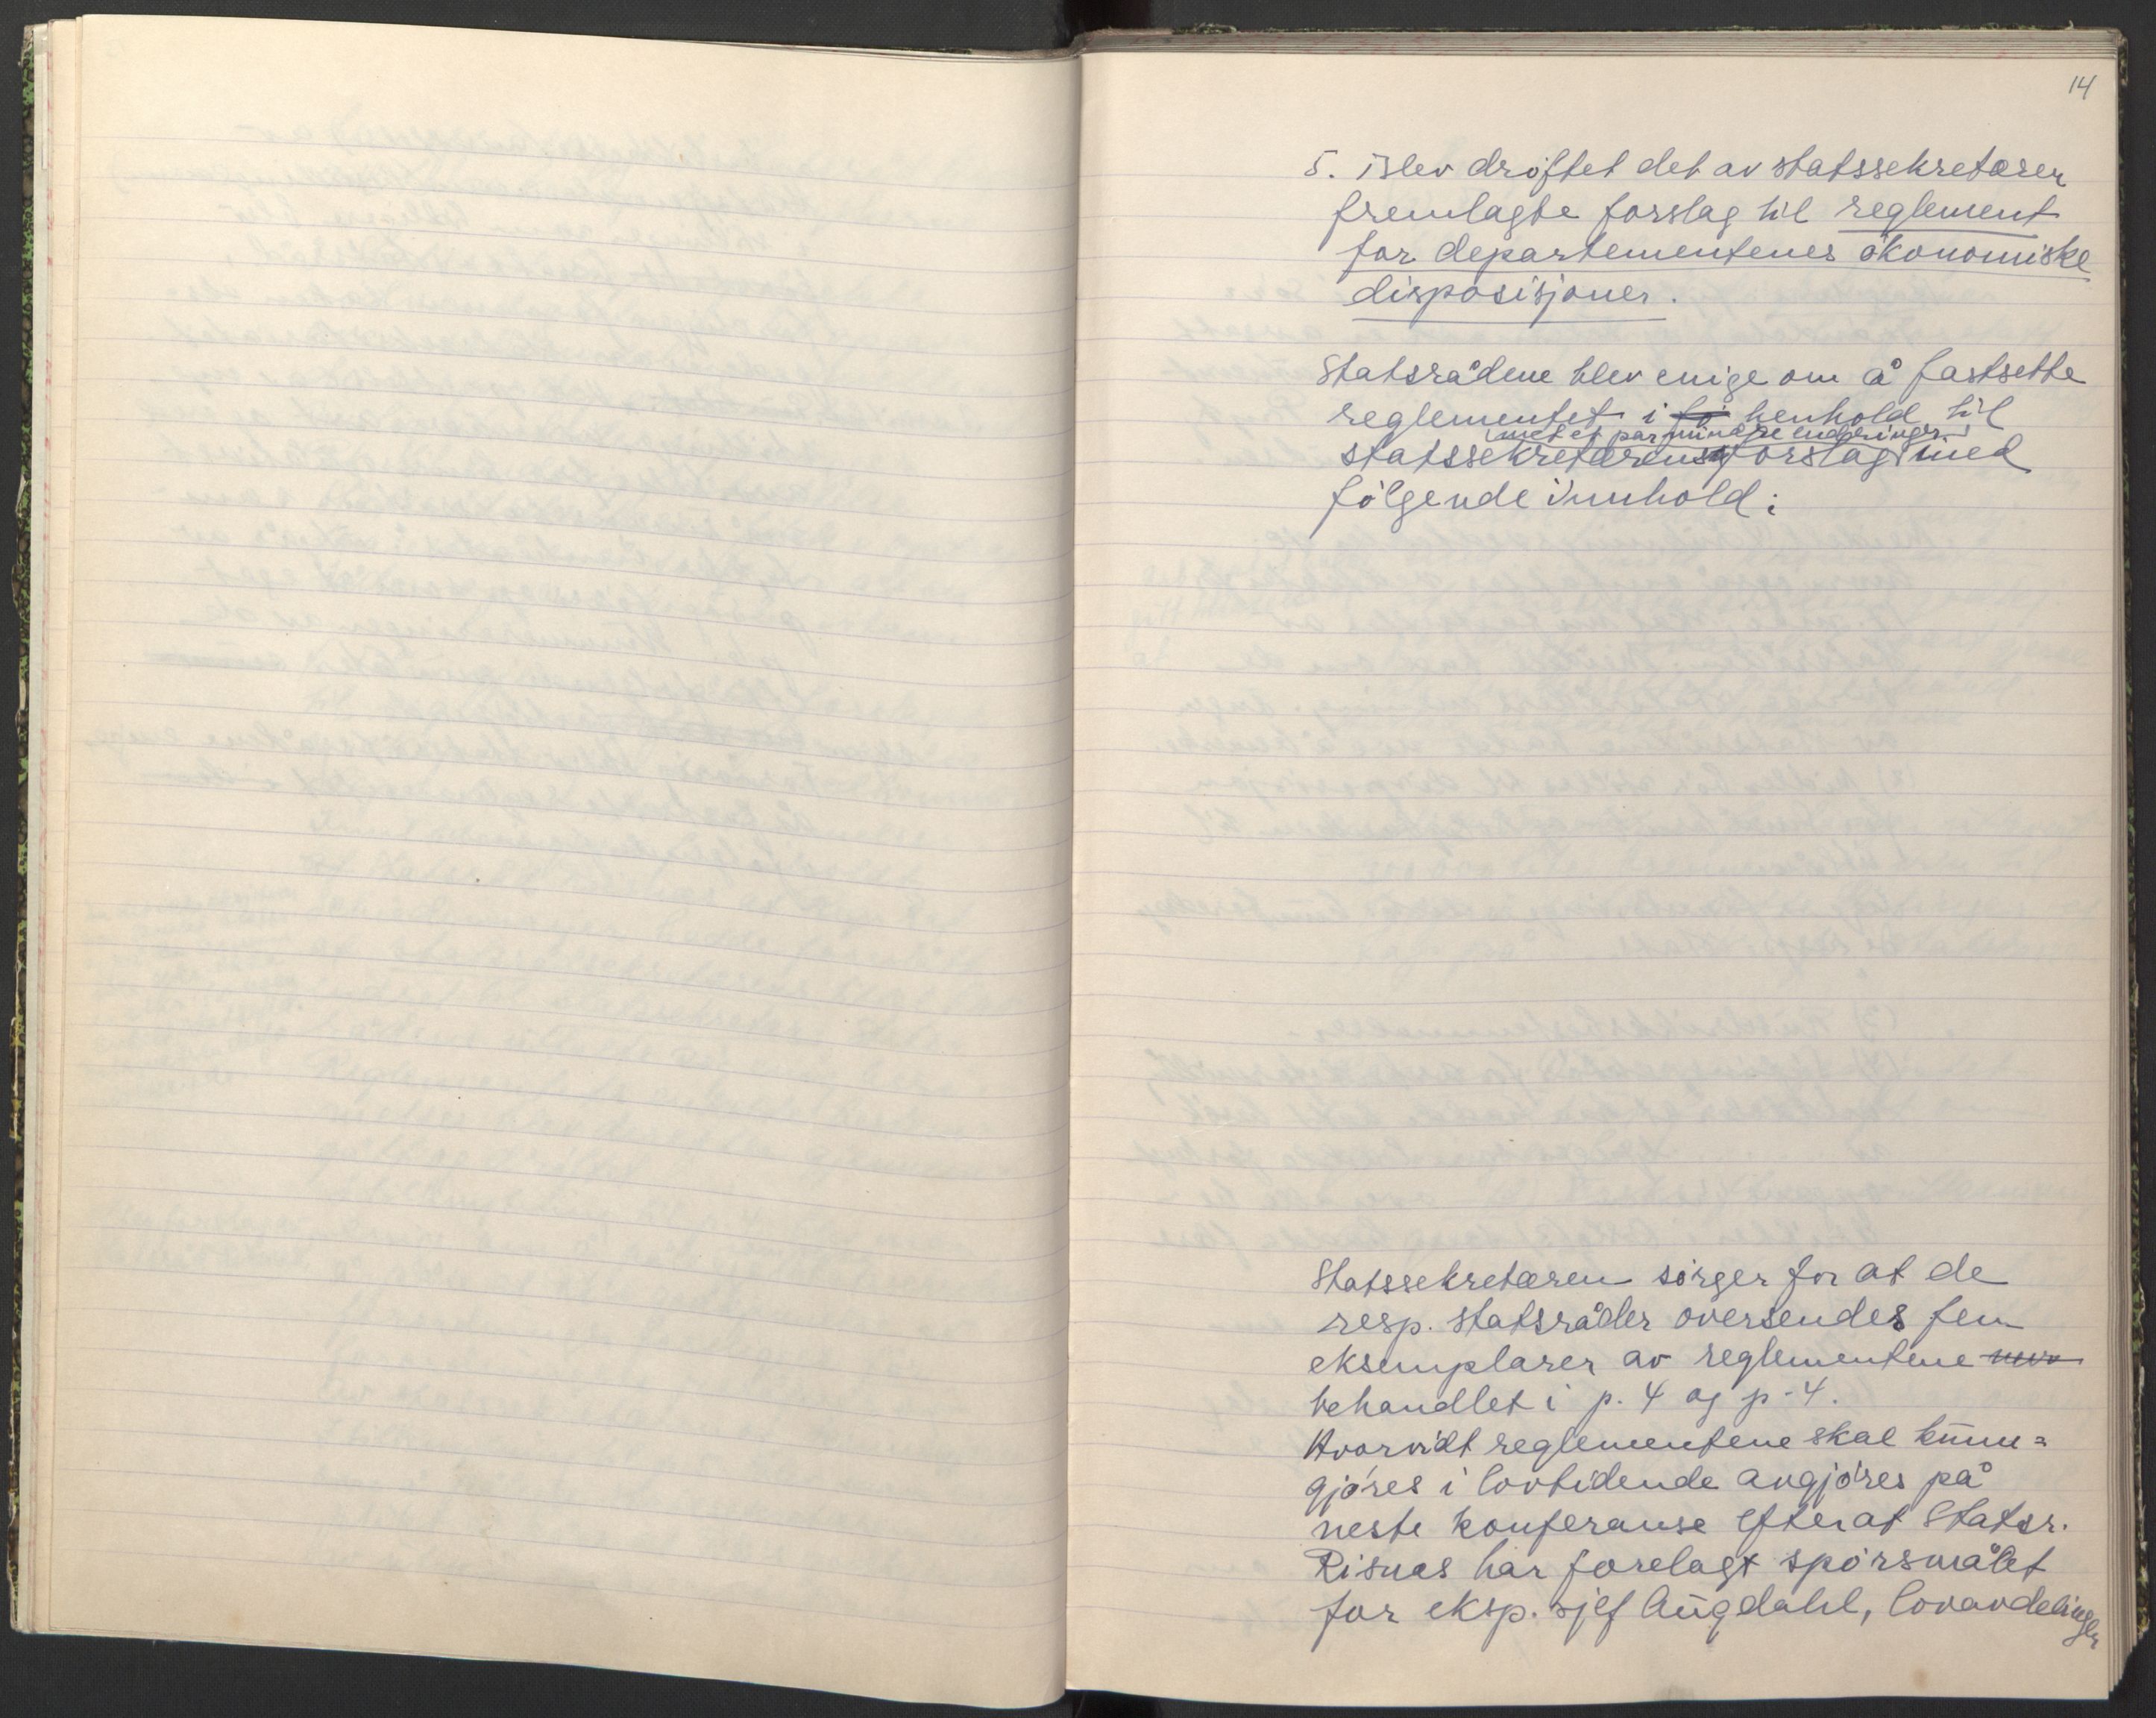 14
5. Blev drøftet det av statssekretæren
fremlagte forslag til reglement
for departementenes økonomiske
disposisjoner.
Statsrådene blev enige om å fastsette
reglementet i henhold til
med et par mindre endringer
statssekretærens forslag med
følgende innhold:
Statssekretæren sørger for at de
resp. statsråder oversendes fem
eksemplarer av reglementene
behandlet i p. 4 og p. 4.
Hvorvidt reglementene skal kunn=
gjøres i lovtidende avgjøres på
neste konferanse efterat Statsr.
Risnæs har forelagt spørsmålet
for eksp. sjef Augdahl, lovavdelingen